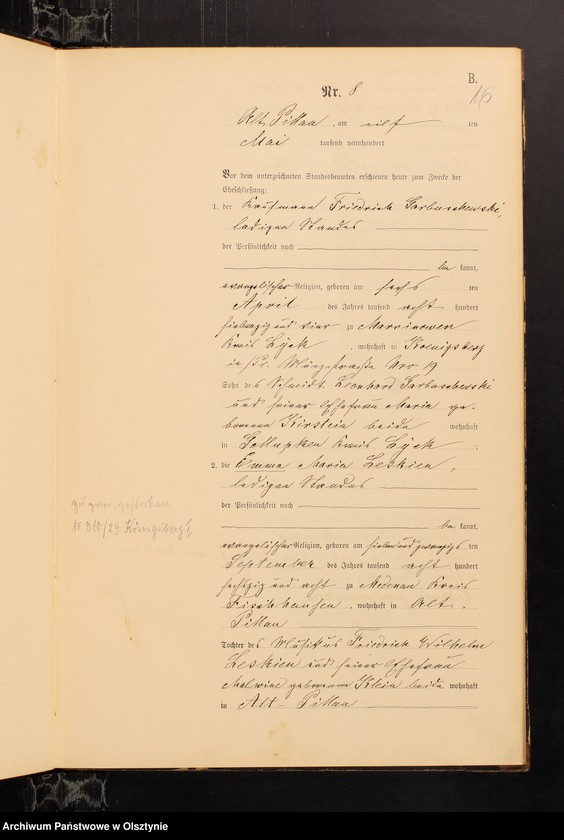 B.
Nr. 8
16
Alt Pillau, am elf ten
Mai tausend neunhundert
Vor dem unterzeichneten Standesbeamten erschienen heute zum Zwecke der
Eheschließung:
1. der Kaufmann Friedrich Garbuschewski,
ledigen Standes
der Persönlichkeit nach
be kannt,
evangelischer Religion, geboren am sechs ten
April des Jahres tausend acht hundert
siebenzig und vier zu Marzinowen
Kreis Lyck, wohnhaft in Koenigsberg
in /Pr. Münzstraße Nro 19
Sohn des Schmidt Leonhard Garbuschewski
und seiner Ehefrau Maria ge-
borenen Kirstein beide wohnhaft
in Kreis Lyck ;
2. die Emma Maria Leskien,
ledigen Standes
der Persönlichkeit nach
be kannt,
evangelischer Religion, geboren am sieben und zwanzigs ten
September des Jahres tausend acht hundert
sechszig und acht zu Medenau Kreis
Fischhausen, wohnhaft in Alt-
Pillau
Tochter des Musikus Friedrich Wilhelm
Leskien und seiner Ehefrau
Malwine geborenen Klein beide wohnhaft
in Alt-Pillau
gestorben
№ 310/29 Königsberg I,
Archiwum Państwowe w Olsztynie